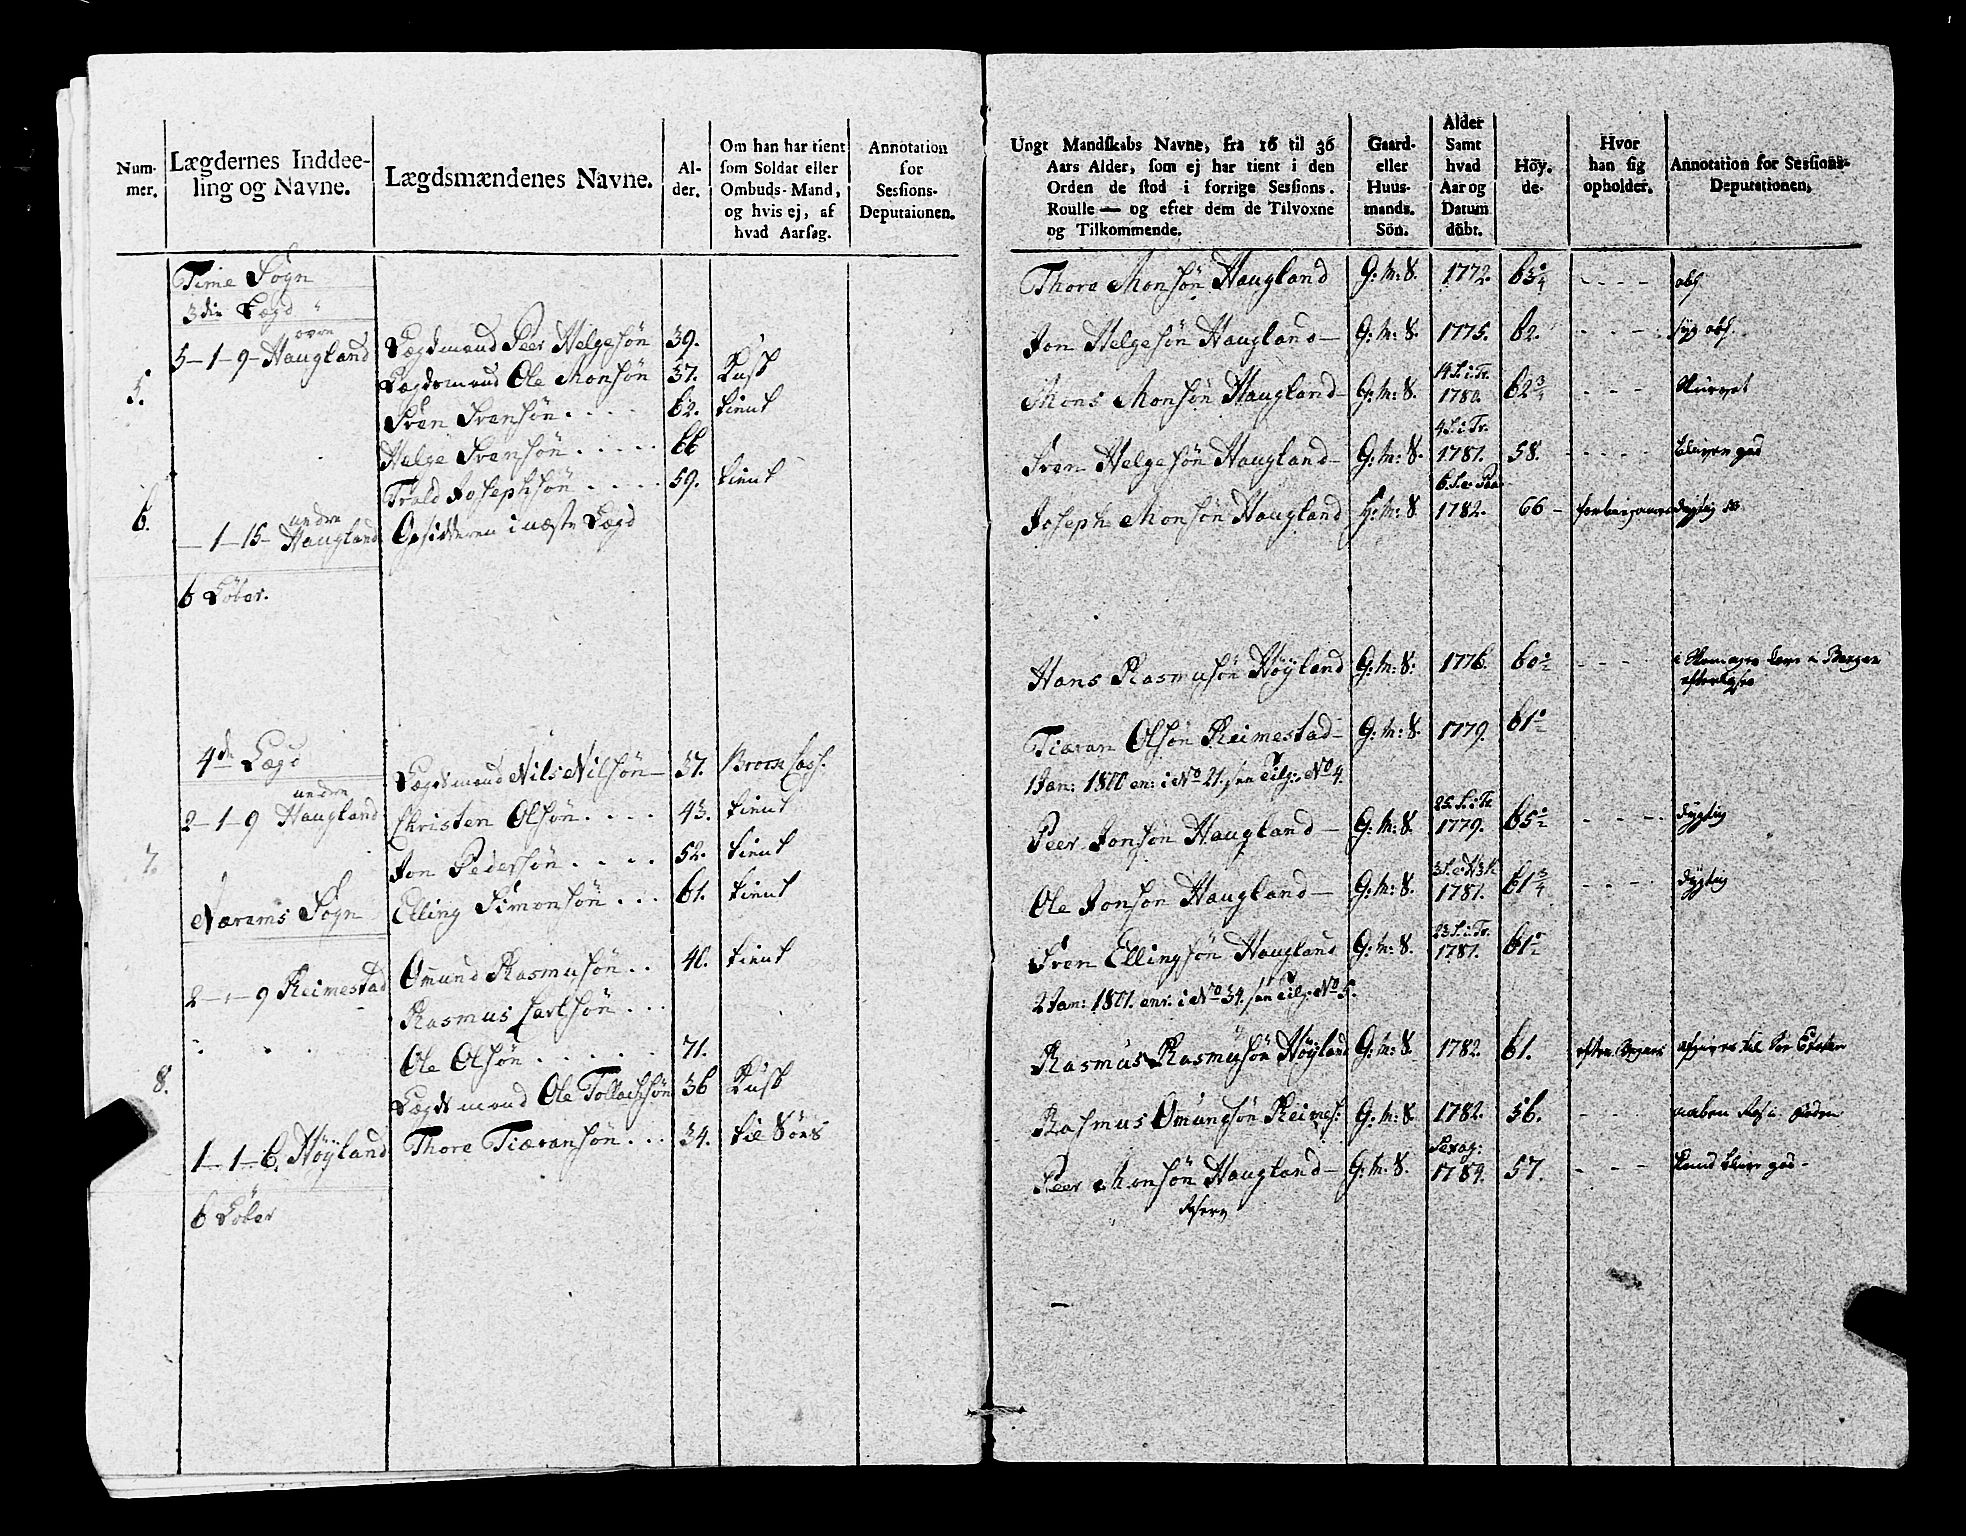 Num-
mer.
Lægdernes Inddee-
ling og Navne.
Lægdsmændenes Navne.
Al-
der.
Om han har tient
som Soldat eller
Ombuds-Mand,
og hvis ej, af
hvad Aarsag.
Annotation
for
Sessions-
Deputaionen.
Time Sogn
3die Lægd
5-1-9- Haugland
Lægdsmand Peer Helgesön 39.
5.
Lægdsmand Ole Monsön 37. Kusk
Sven Svensön . . . . 62. tient
Helge Svensön . . . . . 66
Josephsön . . . . 59. tient
6.
undre
-1-15- Haugland Opsidderen i næste Lægd
6 Löber.
4de Lægd
Lægdsmand Nils Nilsön 37.
undre
2-1-9 Haugland Christen Olsön . . . . 43. tient
7. Jon Pedersön . . . . 52. tient
Elling Simonsön . . . 61. tient
Nærems Sogn
Omund Rasmusön . . 40. tient
2-1-9 Reimestad
Rasmus Carlsön . . .
Ole Olsön . . . . . . 71.
8.
Lægdsmand Ole Tollachsön 36 Kusk
1-1-6. Höyland Thore Tiæransön . . . 34. til Söes
6 Löber
Ungt Mandskabs Navne, fra 16 til 36
Aars Alder, som ej har tient i den
Orden de stod i forrige Sessions.
Roulle — og efter dem de Tilvoxne
og Tilkommende.
Gaard-
eller
Huus-
mands.
Sön.
Alder
Samt
hvad
Aar og
Datum
döbt.
Höy.
de.
Hvor
han sig
opholder.
Annotation for Sessions-
Deputationen.
Thore Monsön Haugland G: M: S. 1772. - - - -
Jon Helgesön Haugland - G: M: S. 1775. 62. - - - syg
14 S. i Tr.
Mons Monsön Haugland - G: M: S. 1780. 62 3/4 - - -
4 S. i Tr.
Sven Helgesön Haugland - G: M: S. 1781. 58. - - - - bliver god
Joseph Monsön Haugland G: M: S 1782. 66 - dygtig
Hans Rasmusön Höyland G: M: S. 1776. - - - i Bergen
Tiæran Olsön Reimestad - G: M: S 1779.
1 Jan: 1800 en: i No 21. sen Tilg: No 4.
25. S. i Tr.
Peer Jonsön Haugland - G: M: S. 1779. - - - - dygtig
Ole Jonsön Haugland - G: M: S. 1781. 61 3/4 - - - - dygtig
23 S. i Tr.
Sven Ellingsön Haugland G: M: S. 1781.
2 Jan: 1801. enr: i No 34. sen Tilg: No 5.
Rasmus Rasmusön Höyland G: M: S 1782. 61.
Rasmus Omundsön Reimes: G: M: S. 1782. 56. - - -
Peer Monsön Haugland - G: M: S. 1784. 57. - - -